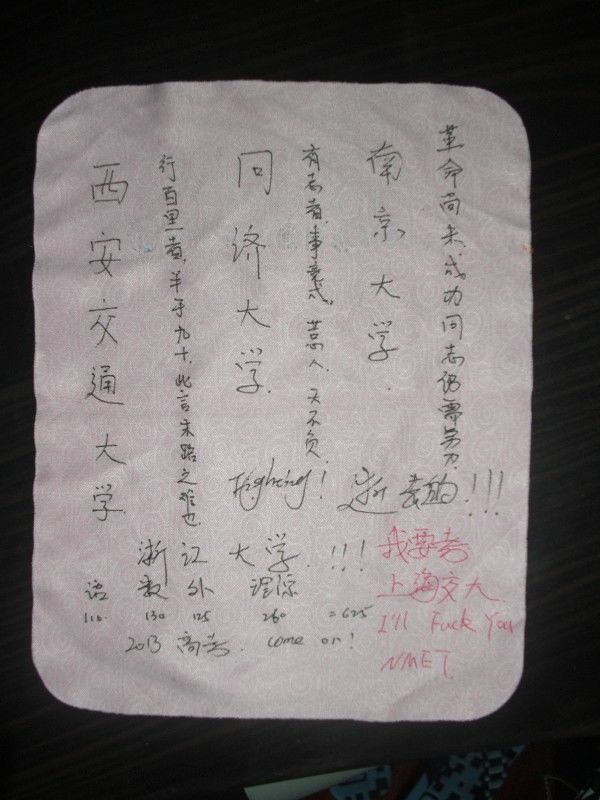 革命尚未成功同志仍需努力
南京大学.
有志者,事竟成,苦心人,天不负.
同济大学.
行百里者,半于九十,此言末路之难也
西安交通大学
Fighting! 浙!!!
浙江大学.!!!
语 数 外 理综
110. 130 125 260 =625
2013 高考. come on!
我要考
上海交大.
I'll Fuck You
NMET.